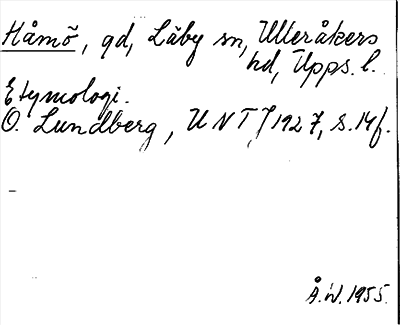 Håmö, gd, Läby sn, Ulleråkers
hd, Upps. l.
Etymologi.
O. Lundberg, UNT 1927, s. 14f.
Å.W. 1955.